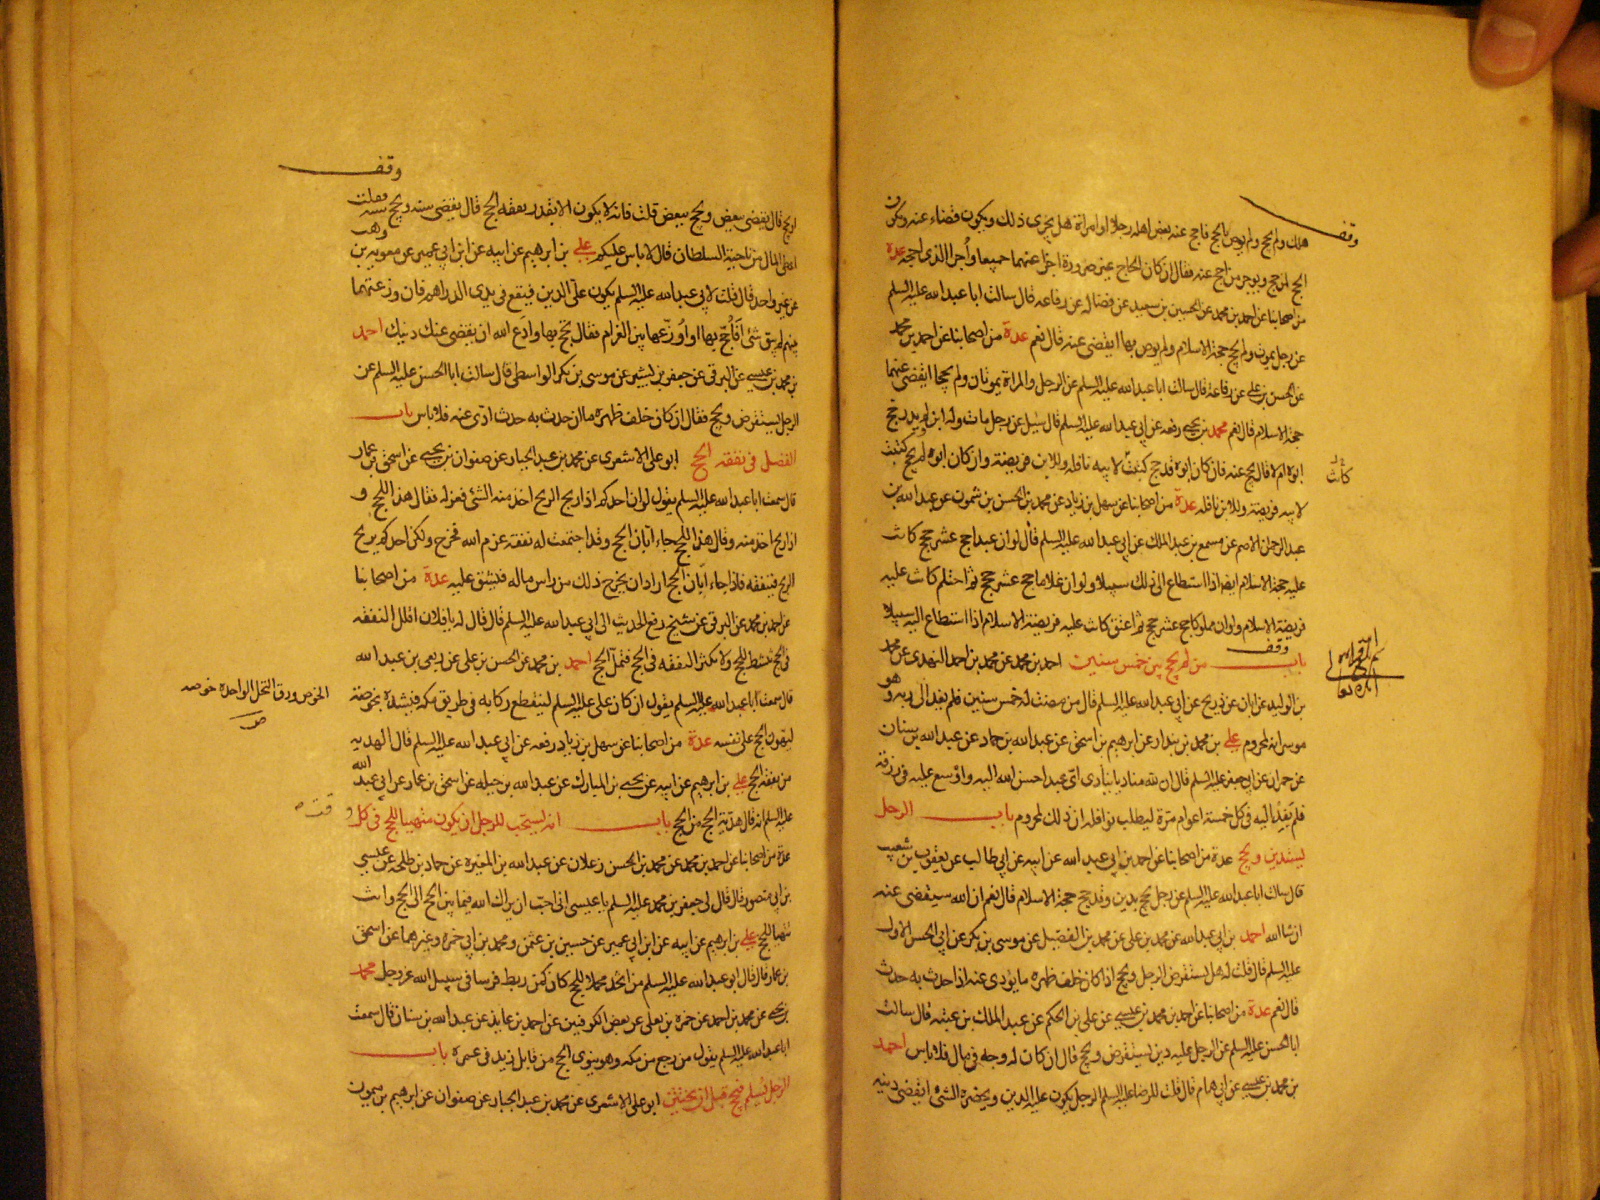 وقف
هلك ولم يحج ولم يوص بالحج فاحج عنه بعض اهله رجلا او امراة هل يجزى ذلك ويكون قضاء عنه ويكون
الحج لمن حج ويوجر من احج عنه فقال ان كان الحاج غير صرورة اجزا عنهما جميعا واجر الذى احجه عدة
من اصحابنا عن احمد بن محمد عن الحسين بن سعيد عن فضاله عن رفاعه قال سالت ابا عبد الله عليه السلم
عن رجل يموت ولم يحج حجة الاسلام ولم يوص بها ايقضى عنه قال نعم عدة من اصحابنا عن احمد بن محمد
عن الحسن بن على عن رفاعة قال سالت ابا عبد الله عليه السلم عن الرجل والمراة يموتان ولم يحجا ايقضى عنهما
حجة الاسلام قال نعم محمد بن يحيى رفعه عن ابى عبد الله عليه السلم قال سئل عن رجل مات وله ابن لم يدر حج
ابوه ام لا قال يحج عنه فان كان ابوه قد حج كتبت لابيه نافله وللابن فريضة وان كان ابوه لم يحج كتبت
كانت
لابيه فريضة وللابن نافله عدة من اصحابنا عن سهل بن زياد عن محمد بن الحسن بن شمون عن عبد الله بن
عبد الرحمن الاصم عن مسمع بن عبد الملك عن ابى عبد الله عليه السلم قال لو ان عبدا حج عشر حجج كانت
عليه حجة الاسلام ايضا اذا استطاع الى ذلك سبيلا ولو ان غلاما حج عشر حجج ثم احتلم كانت عليه
فريضة الاسلام ولو ان مملوكا حج عشر حجج ثم اعتق كانت عليه فريضة الاسلام اذا استطاع اليه سبيلا
وقف
باب من لم يحج بين خمس سنين احمد بن محمد عن محمد بن احمد النهدى عن محمد
بن الوليد عن ابان عن ذريح عن ابى عبد الله عليه السلم قال من مضت له خمس سنين فلم يفد الى ربه وهو
موسر انه لمحروم على بن محمد بن بندار عن ابرهيم بن اسحق عن عبد الله بن حماد عن عبد الله بن سنان
عن حمران عن ابى جعفر عليه السلم قال ان لله مناديا ينادى اى عبد احسن الله اليه واوسع عليه فى رزقه
فلم يفد اليه فى كل خمسة اعوام مرة ليطلب نوافله ان ذلك لمحروم باب الرجل
يستدين ويحج عدة من اصحابنا عن احمد بن ابى عبد الله عن ابيه عن ابى طالب عن يعقوب بن شعيب
قال سالت ابا عبد الله عليه السلم عن رجل يحج بدين وقد حج حجة الاسلام قال نعم ان الله سيقضى عنه
ان شا الله احمد بن ابى عبد الله عن محمد بن على عن محمد بن الفضيل عن موسى بن بكر عن ابى الحسن الاول
عليه السلم قال قلت له هل يستقرض الرجل ويحج اذا كان خلف ظهره ما يودى عنه اذا حدث به حدث
قال نعم عدة من اصحابنا عن احمد بن محمد بن عيسى عن على بن الحكم عن عبد الملك بن عتبه قال سالت
ابا الحسن عليه السلم عن الرجل عليه دين يستقرض ويحج قال ان كان له وجه فى مال فلا باس احمد
بن محمد بن عيسى عن ابى همام قال قلت للرضا عليه السلم الرجل يكون عليه الدين ويحضره الشئ ايقضى دينه
وقف
او يحج قال يقضى ببعض ويحج ببعض قلت فانه لا يكون الا بقدر نفقه الحج قال يقضى سنه ويحج سنه فقلت
اعطى المال من ناحية السلطان قال لا باس عليكم على بن ابرهيم عن ابيه عن ابن ابى عمير عن معويه بن وهب
عن غير واحد قال قلت لابى عبد الله عليه السلم يكون على الدين فيقع فى يدى الدراهم فان وزعتها
بينهم لم يبق شئ افاحج بها او اوزعها بين الغرام فقال تحج بها وادع الله ان يقضى عنك دينك احمد
بن محمد بن عيسى عن البرقى عن جعفر بن بشير عن موسى بن بكر الواسطى قال سالت ابا الحسن عليه السلم عن
الرجل يستقرض ويحج فقال ان كان خلف ظهره مال ان حدث به حدث ادى عنه فلا باس باب
الفضل فى نفقه الحج ابو على الاشعرى عن محمد بن عبد الجبار عن صفوان بن يحيى عن اسحق بن عمار
قال سمعت ابا عبد الله عليه السلم يقول لو ان احدكم اذا ربح الربح اخذ منه الشئ فعزله فقال هذا للحج و
اذا ربح اخذ منه وقال هذا للحج جاء ابان الحج وقد اجتمعت له نفقه عزم الله فخرج ولكن احدكم يربح
الربح فينفقه فاذا جاء ابان الحج اراد ان يخرج ذلك من راس ماله فيشق عليه عدة من اصحابنا
عن احمد بن محمد عن البرقى عن شيخ رفع الحديث الى ابى عبد الله عليه السلم قال قال له يا فلان اقلل النفقه
فى الحج تنشط للحج ولا تكثر النفقه فى الحج فتمل الحج احمد بن محمد عن الحسن بن على عن ربعى بن عبد الله
قال سمعت ابا عبد الله عليه السلم يقول ان كان على عليه السلم لينقطع ركابه فى طريق مكه فيشده بخوصة
الخوص ورق النخل الواحدة خوصه
ص
ليهون الحج على نفسه عدة من اصحابنا عن سهل بن زياد رفعه عن ابى عبد الله عليه السلم قال الهديه
من نفقه الحج على بن ابرهيم عن ابيه عن يحيى بن المبارك عن عبد الله بن جبله عن اسحق بن عمار عن ابى عبد الله
عليه السلم انه قال هدية الحج من الحج باب انه يستحب للرجل ان يكون متهييا للحج فى كل وقت
عدة من اصحابنا عن احمد بن محمد عن محمد بن الحسن زعلان عن عبد الله بن المغيره عن حماد بن طلحه عن عيسى
بن ابى منصور قال قال لى جعفر بن محمد عليه السلم يا عيسى انى احب ان يراك الله فيما بين الحج الى الحج وانت
تتهيا للحج على بن ابرهيم عن ابيه عن ابن ابى عمير عن حسين بن عثمن ومحمد بن ابى حمزه وغيرهما عن اسحق
بن عمار قال قال ابو عبد الله عليه السلم من اتخذ محملا للحج كان كمن ربط فرسا فى سبيل الله عز وجل محمد
بن يحيى عن محمد بن احمد عن حمزه بن يعلى عن بعض الكوفيين عن احمد بن عايذ عن عبد الله بن سنان قال سمعت
ابا عبد الله عليه السلم يقول من رجع من مكه وهو ينوى الحج من قابل زيد فى عمره باب
الرجل يسلم فيحج قبل ان يختتن ابو على الاشعرى عن محمد بن عبد الجبار عن صفوان عن ابرهيم بن ميمون